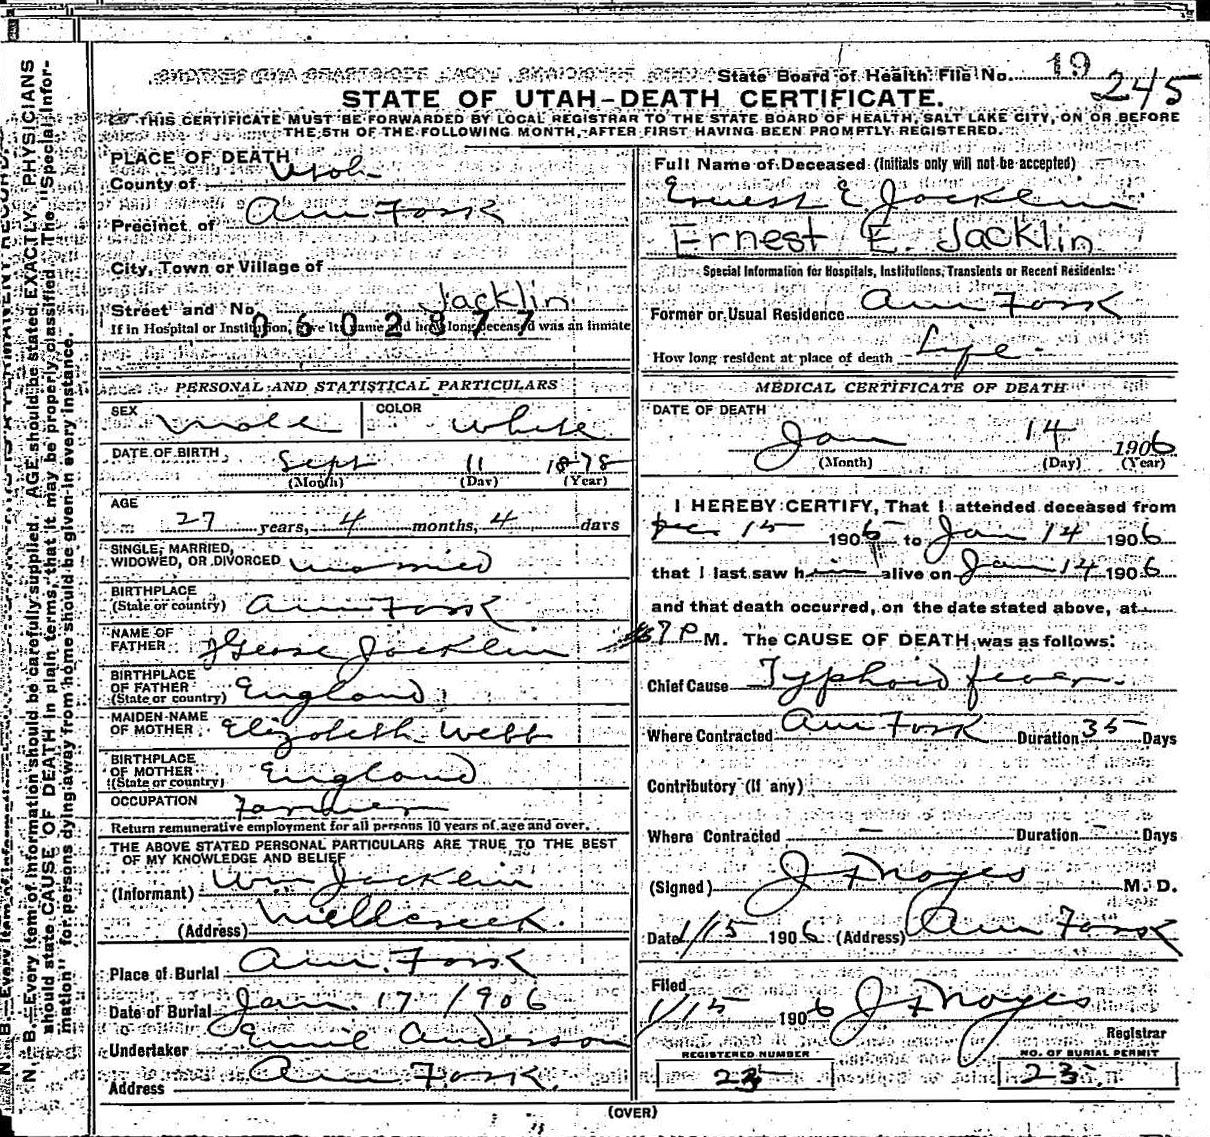 State Board of Health File No. 19
245
STATE OF UTAH-DEATH CERTIFICATE.
THIS CERTIFICATE MUST BE FORWARDED BY LOCAL REGISTRAR TO THE STATE BOARD OF HEALTH, SALT LAKE CITY, ON OR BEFORE
THE 5TH OF THE FOLLOWING MONTH, AFTER FIRST HAVING BEEN PROMPTLY REGISTERED.
PLACE OF DEATH
County of Utah
Precinct of Am Fork
City, Town or Village of
Street and No. Jacklin
0602877
If in Hospital or Institution, give its name and how long deceased was an inmate
PERSONAL AND STATISTICAL PARTICULARS
SEX Male COLOR White
DATE OF BIRTH Sept 11 1878
(Month) (Day) (Year)
AGE
27 years, 4 months, 4 days
SINGLE, MARRIED,
WIDOWED, OR DIVORCED married
BIRTHPLACE
(State or country) Am Fork
NAME OF
FATHER George Jacklin
BIRTHPLACE
OF FATHER
(State or country) England
MAIDEN NAME
OF MOTHER Elizabeth Webb
BIRTHPLACE
OF MOTHER
(State or country) England
OCCUPATION Farmer
Return remunerative employment for all persons 10 years of age and over.
THE ABOVE STATED PERSONAL PARTICULARS ARE TRUE TO THE BEST
OF MY KNOWLEDGE AND BELIEF
(Informant) Wm Jacklin
(Address) Millcreek.
Place of Burial Am. Fork
Date of Burial Jan. 17 1906
Undertaker Emil Anderson
Address Am Fork.
Full Name of Deceased (Initials only will not be accepted)
Ernest E Jacklin
Ernest E. Jacklin
Special Information for Hospitals, Institutions, Transients or Recent Residents:
Former or Usual Residence Am Fork
How long resident at place of death Life.
MEDICAL CERTIFICATE OF DEATH
DATE OF DEATH
Jan 14 1906
(Month) (Day) (Year)
I HEREBY CERTIFY, That I attended deceased from
Dec 15 1905 to Jan 14 1906
that I last saw him alive on Jan 14 1906
and that death occurred, on the date stated above, at
7 P M. The CAUSE OF DEATH was as follows:
Chief Cause Typhoid fever.
Where Contracted Am Fork Duration 35 Days
Contributory (if any)
Where Contracted - Duration - Days
(Signed) J F Noyes M. D.
Date 1/15 1906 (Address) Am Fork
Filed
1/15 1906 J F Noyes
Registrar
REGISTERED NUMBER
23
NO. OF BURIAL PERMIT
23.
(OVER)
N. B.—Every item of information should be carefully supplied. AGE should be stated EXACTLY. PHYSICIANS
should state CAUSE OF DEATH in plain terms, that it may be properly classified. The "Special Infor-
mation" for persons dying away from home should be given in every instance.